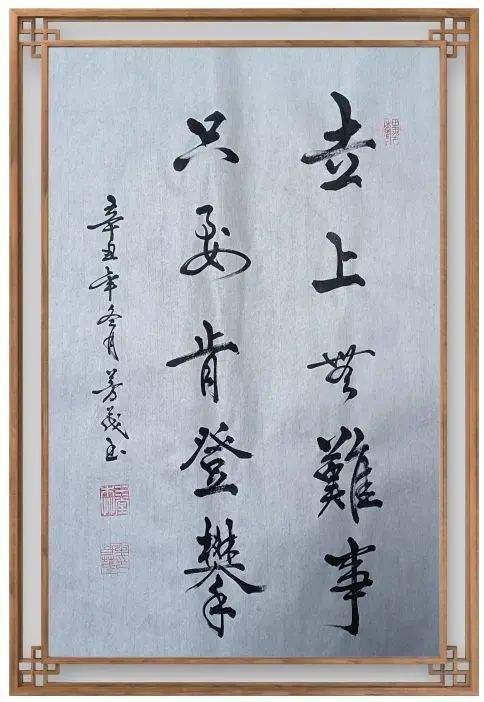 世上無難事
只要肯登攀
辛丑年冬月芳